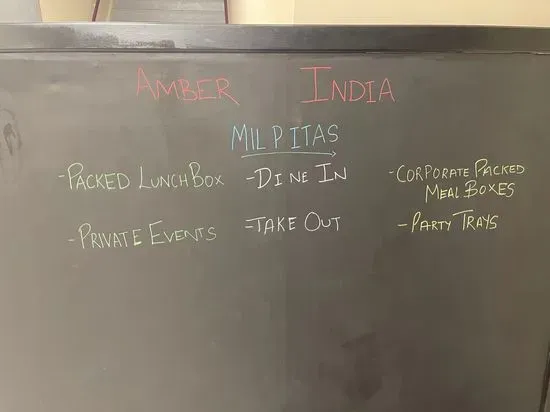 AMBER INDIA
MILPITAS
-PACKED LUNCH BOX
-DINE IN
-CORPORATE PACKED
MEAL BOXES
-PRIVATE EVENTS
-TAKE OUT
-PARTY TRAYS